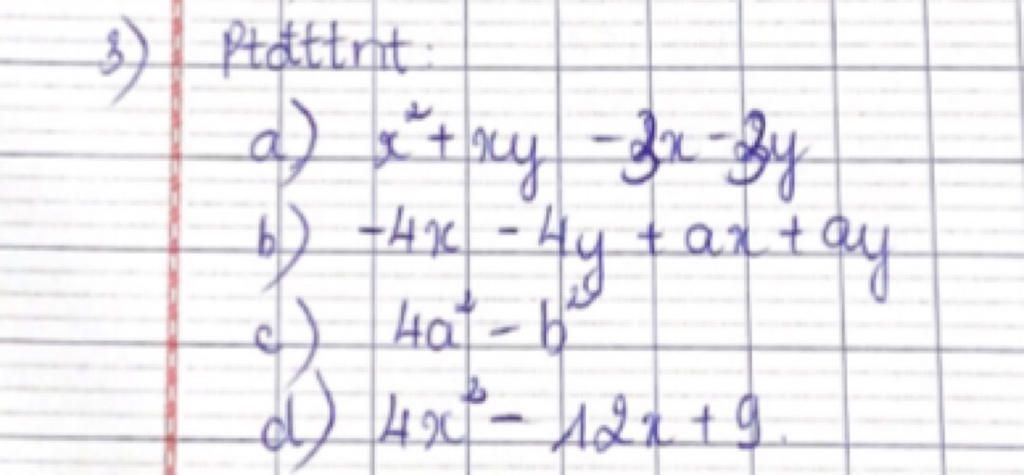 3) Ptđttnt:
a) x² + xy - 3x - 3y
b) -4x - 4y + ax + ay
c) 4a² - b²
d) 4x² - 12x + 9.